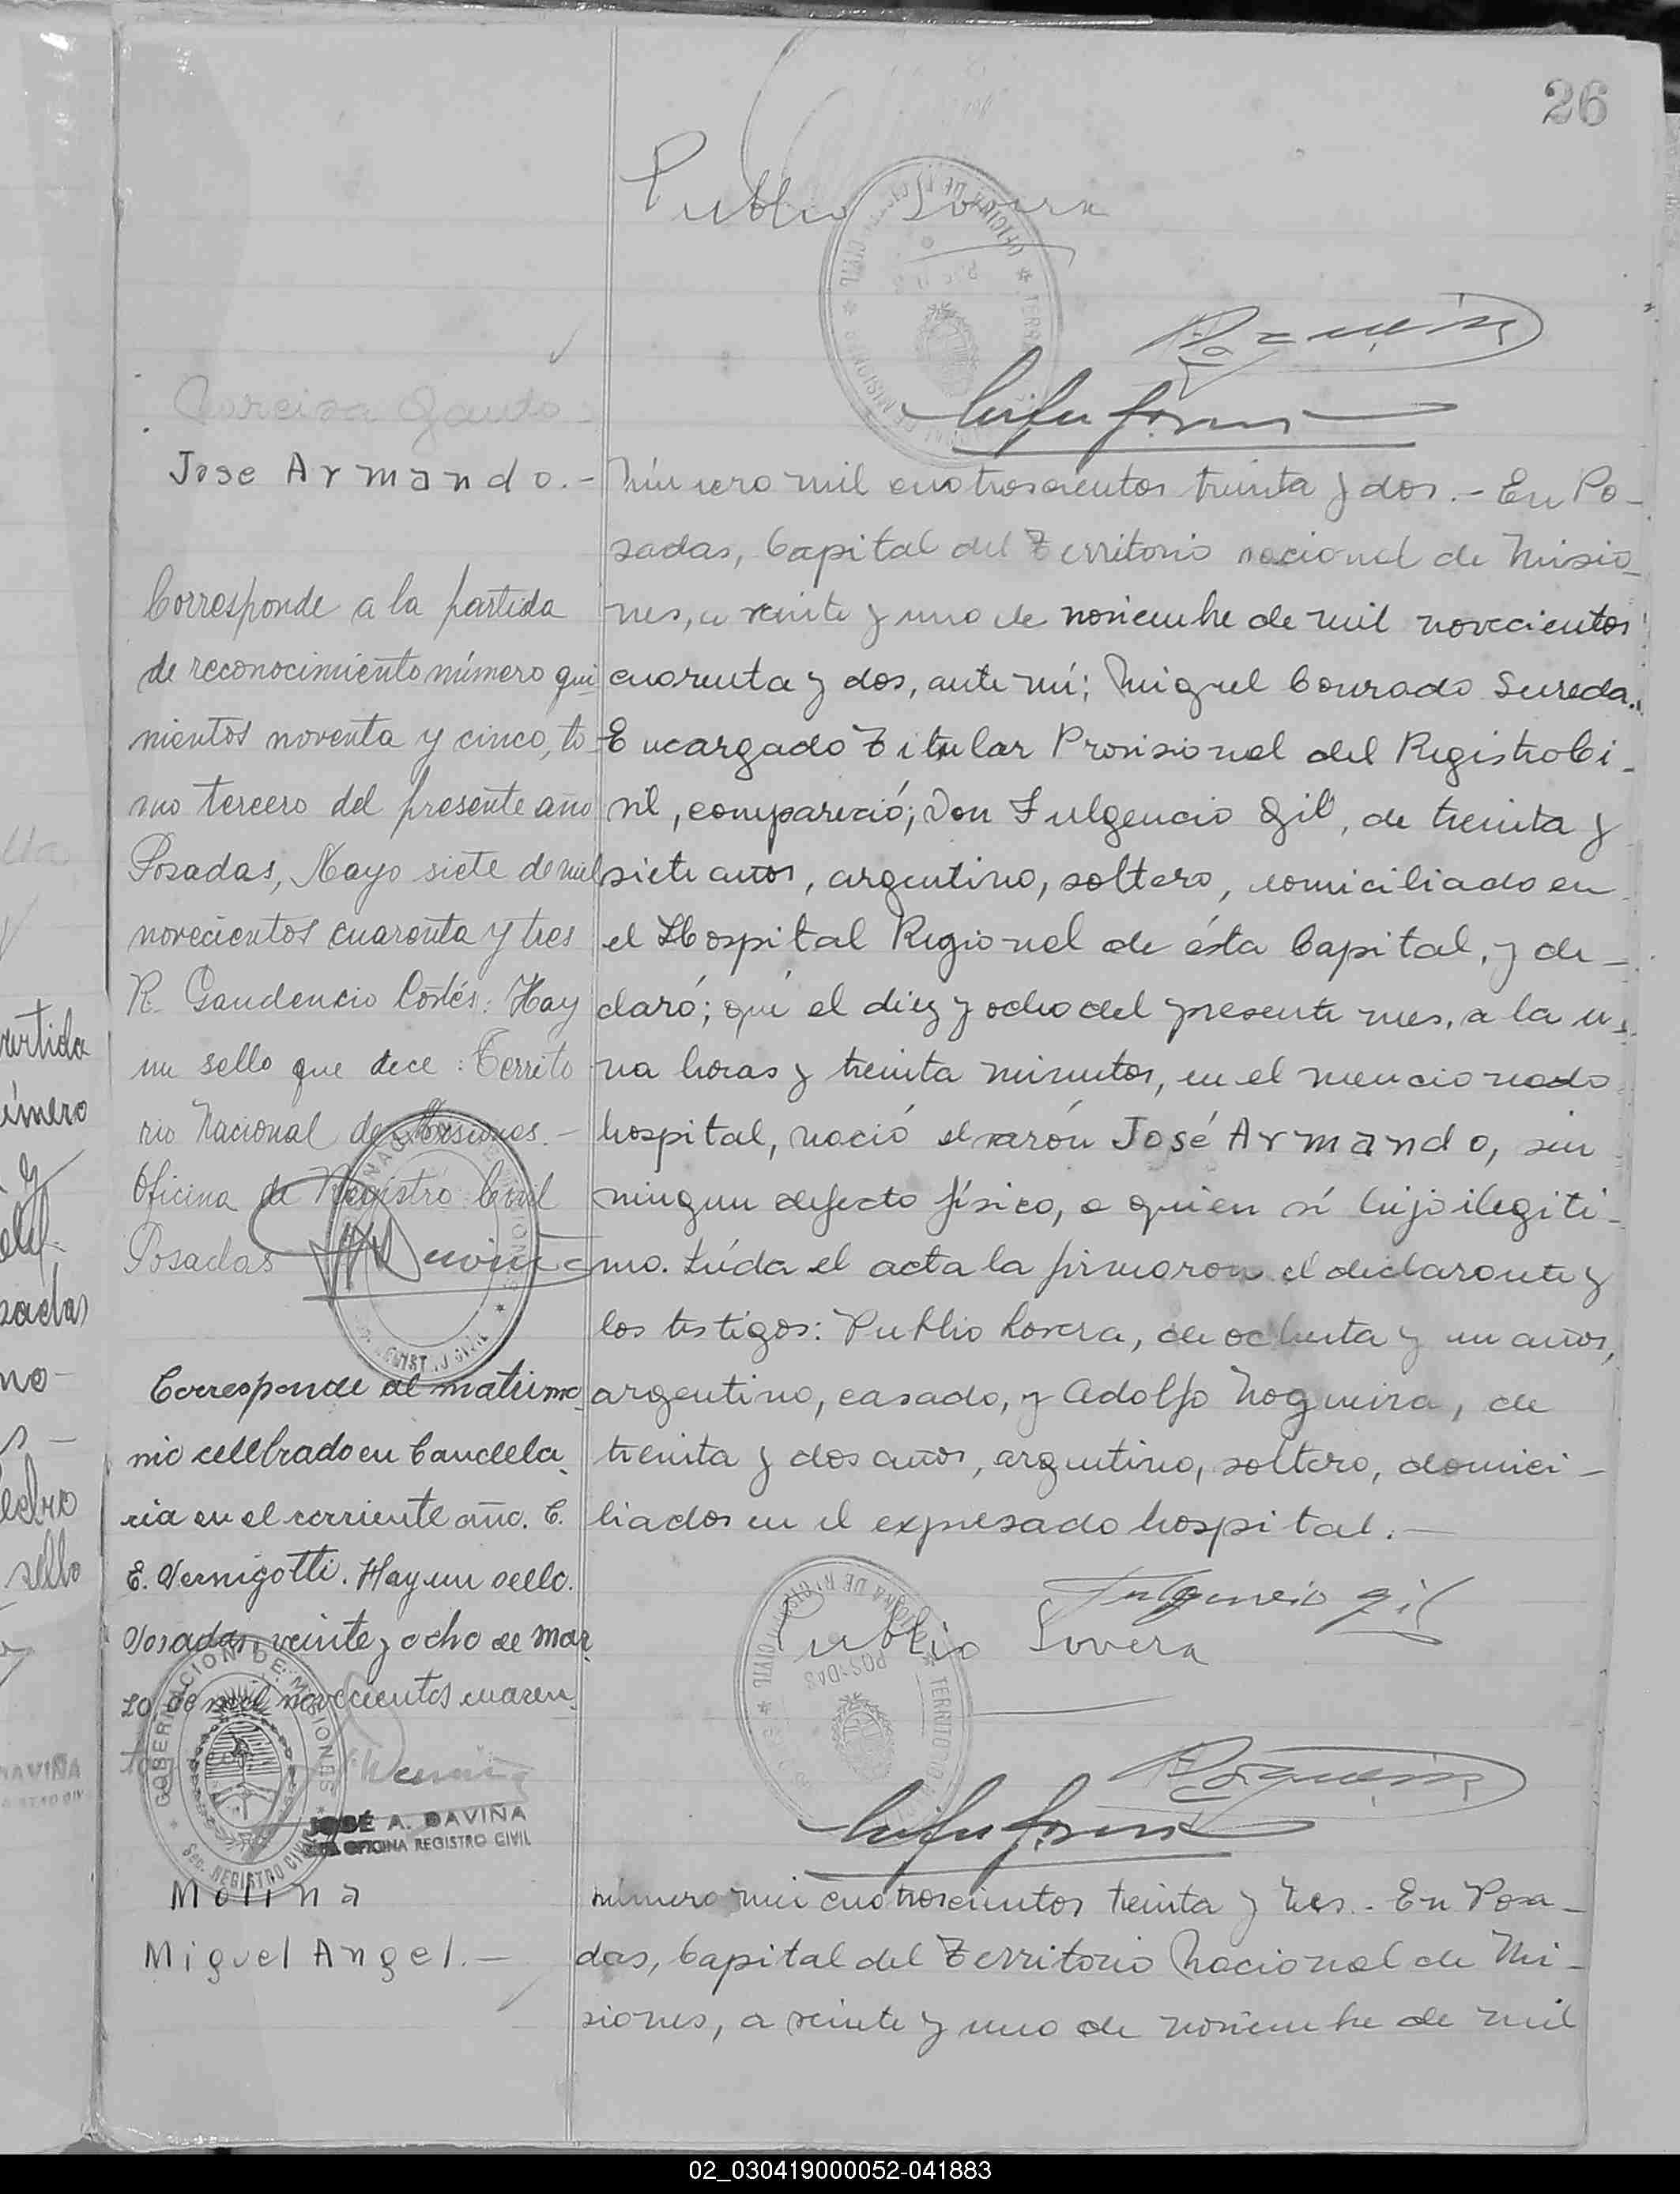 26
Publio Lovera
Jose Armando.-
Corresponde a la partida
de reconocimiento número qui
nientos noventa y cinco, to
mo tercero del presente año
Posadas, Mayo siete de mil
novecientos cuarenta y tres
R. Gaudencio Cortés. Hay
un sello que dece: Territo
rio Nacional de Misiones.-
Oficina de Registro Civil
Posadas
Corresponde al matrimo
nio celebrado en Candela
ria en el corriente año. C.
E. Vernigotti. Hay un sello.
Posadas, veinte y ocho de Mar
zo, de mil novecientos cuaren
ta
GOBERNACION DE MISIONES
Sec. REGISTRO CIVIL
JOSÉ A. DAVIÑA
OFICINA REGISTRO CIVIL
Número mil cuatroscientos treinta y dos.- En Po-
sadas, Capital del Territorio nacional de Misio-
nes, a veinte y uno de noviembre de mil novecientos
cuarenta y dos, ante mí; Miguel Conrado Sureda.
Encargado Titular Provisional del Registro Ci-
vil, compareció; Don Fulgencio Gil, de treinta y
siete años, argentino, soltero, domiciliado en
el Hospital Regional de ésta Capital, y de-
claró; qué el diez y ocho del presente mes, a la u-
na horas y treinta minutos, en el mencionado
hospital, nació el varón José Armando, sin
ningun defecto físico, a quien sí hijo ilegiti-
mo. Leída el acta la firmaron el declarante y
los testigos: Publio Lovera, de ochenta y un años,
argentino, casado, y Adolfo Nogueira, de
treinta y dos años, argentino, soltero, domici-
liados en el expresado hospital.-
Fulgencio Gil
Publio Lovera
Molina
Miguel Angel.-
número mil cuatroscientos treinta y tres.- En Posa-
das, Capital del Territorio Nacional de Mi-
siones, a veinte y uno de noviembre de mil
02_030419000052-041883